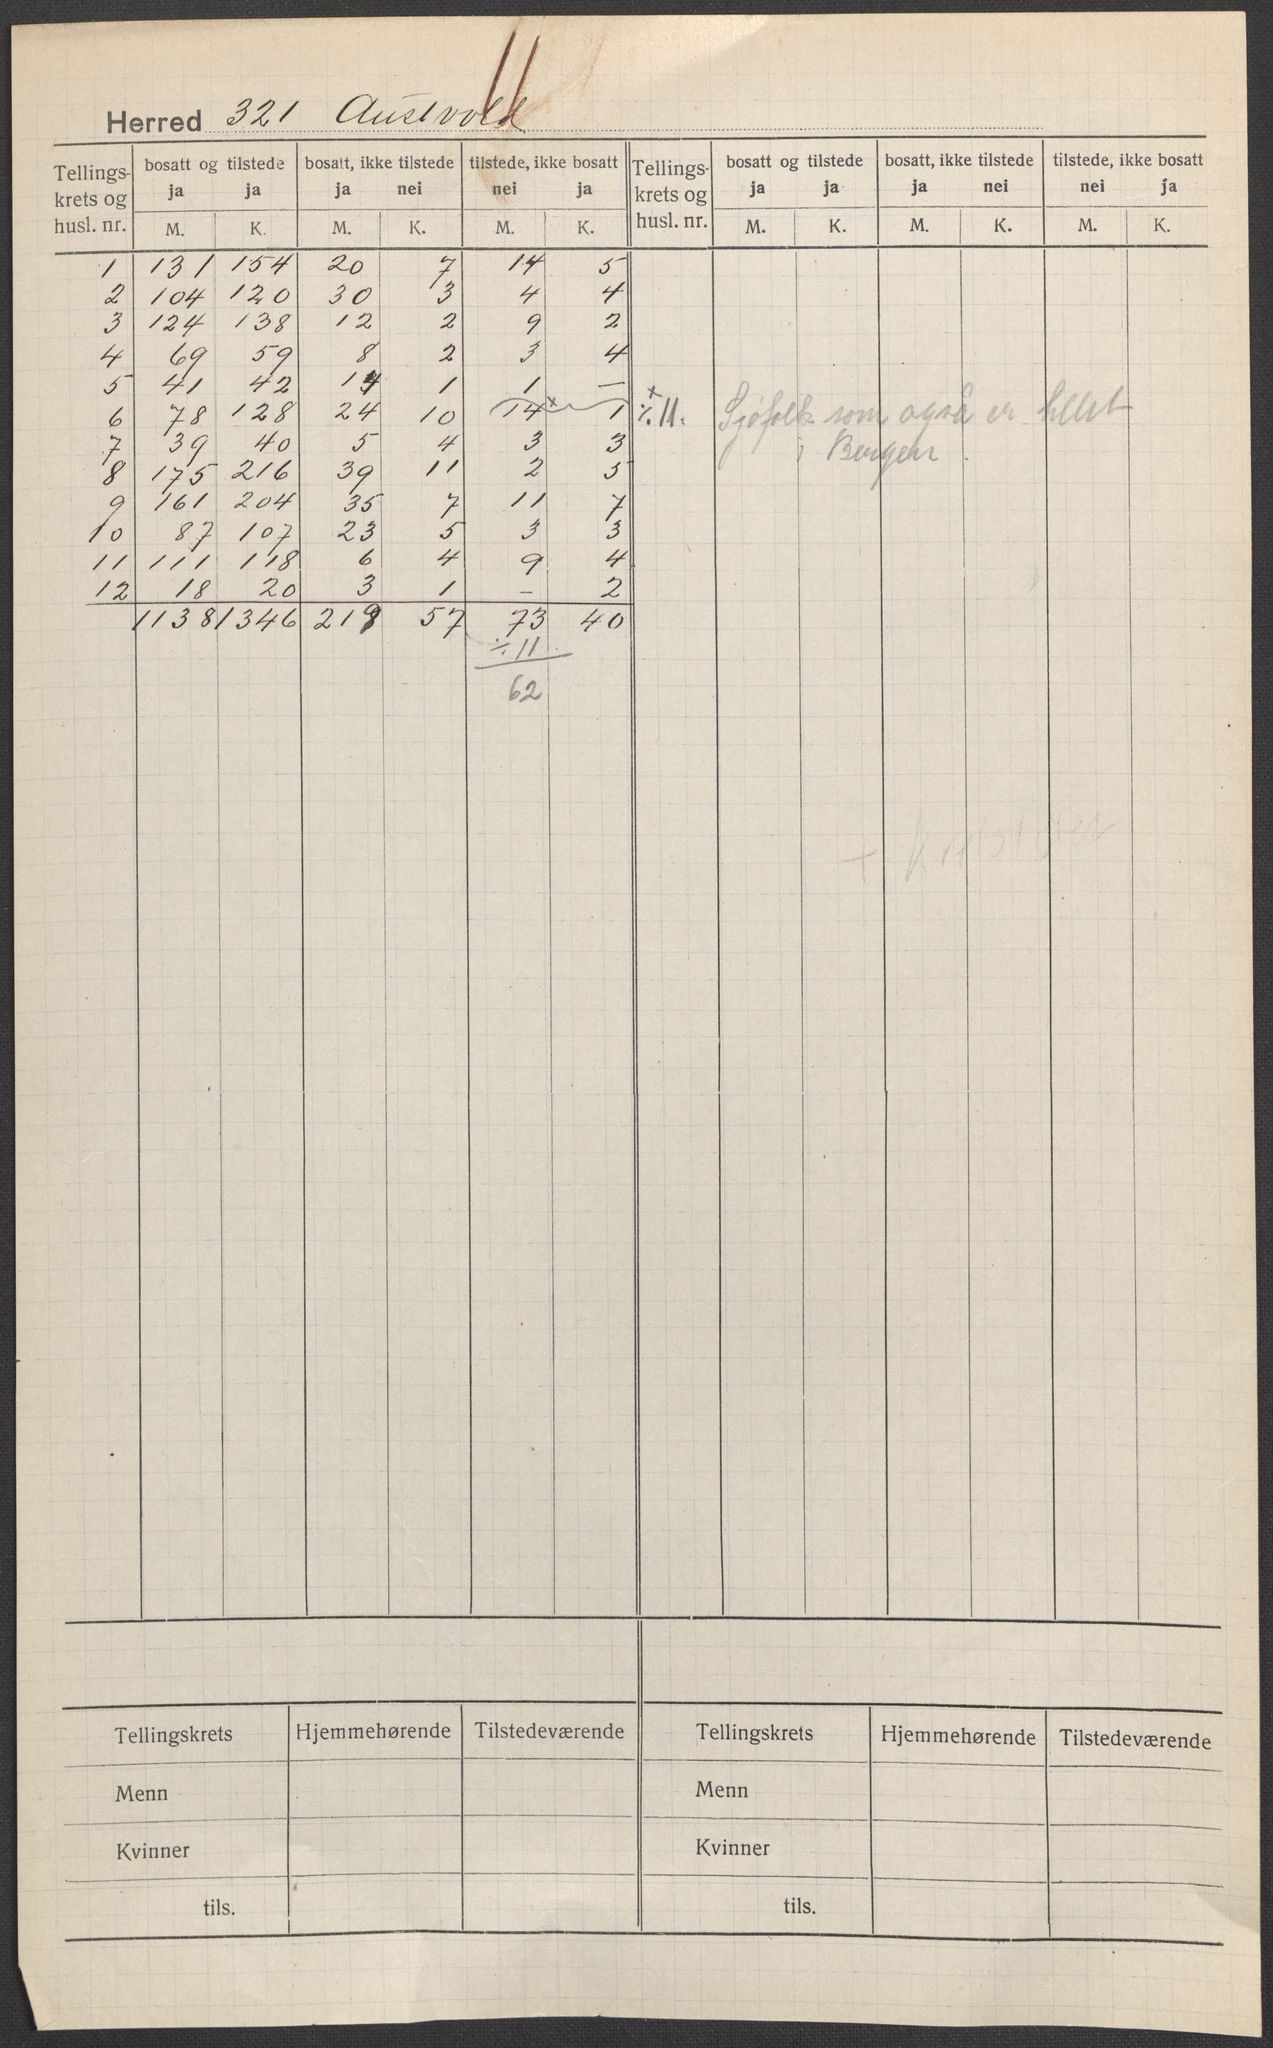 11
Herred 321 Austvold
Tellings-krets og husl. nr. bosatt og tilstede ja ja bosatt, ikke tilstede ja nei tilstede, ikke bosatt nei ja Tellings-krets og husl. nr. bosatt og tilstede ja ja bosatt, ikke tilstede ja nei tilstede, ikke bosatt nei ja
M. K. M. K. M. K. M. K. M. K. M. K.
1 131 154 20 7 14 5
2 104 120 30 3 4 4
3 124 138 12 2 9 2
4 69 59 8 2 3 4
5 41 42 14 1 1 —
6 78 128 24 10 14 x 1 x ÷ 11. Sjøfolk som også er tellet
7 39 40 5 4 3 3 i Bergen.
8 175 216 39 11 2 5
9 161 204 35 7 11 7
10 87 107 23 5 3 3
11 111 118 6 4 9 4
12 18 20 3 1 — 2
1138 1346 219 57 73 40
÷ 11
62
Tellingskrets Hjemmehørende Tilstedeværende Tellingskrets Hjemmehørende Tilstedeværende
Menn Menn
Kvinner Kvinner
tils. tils.